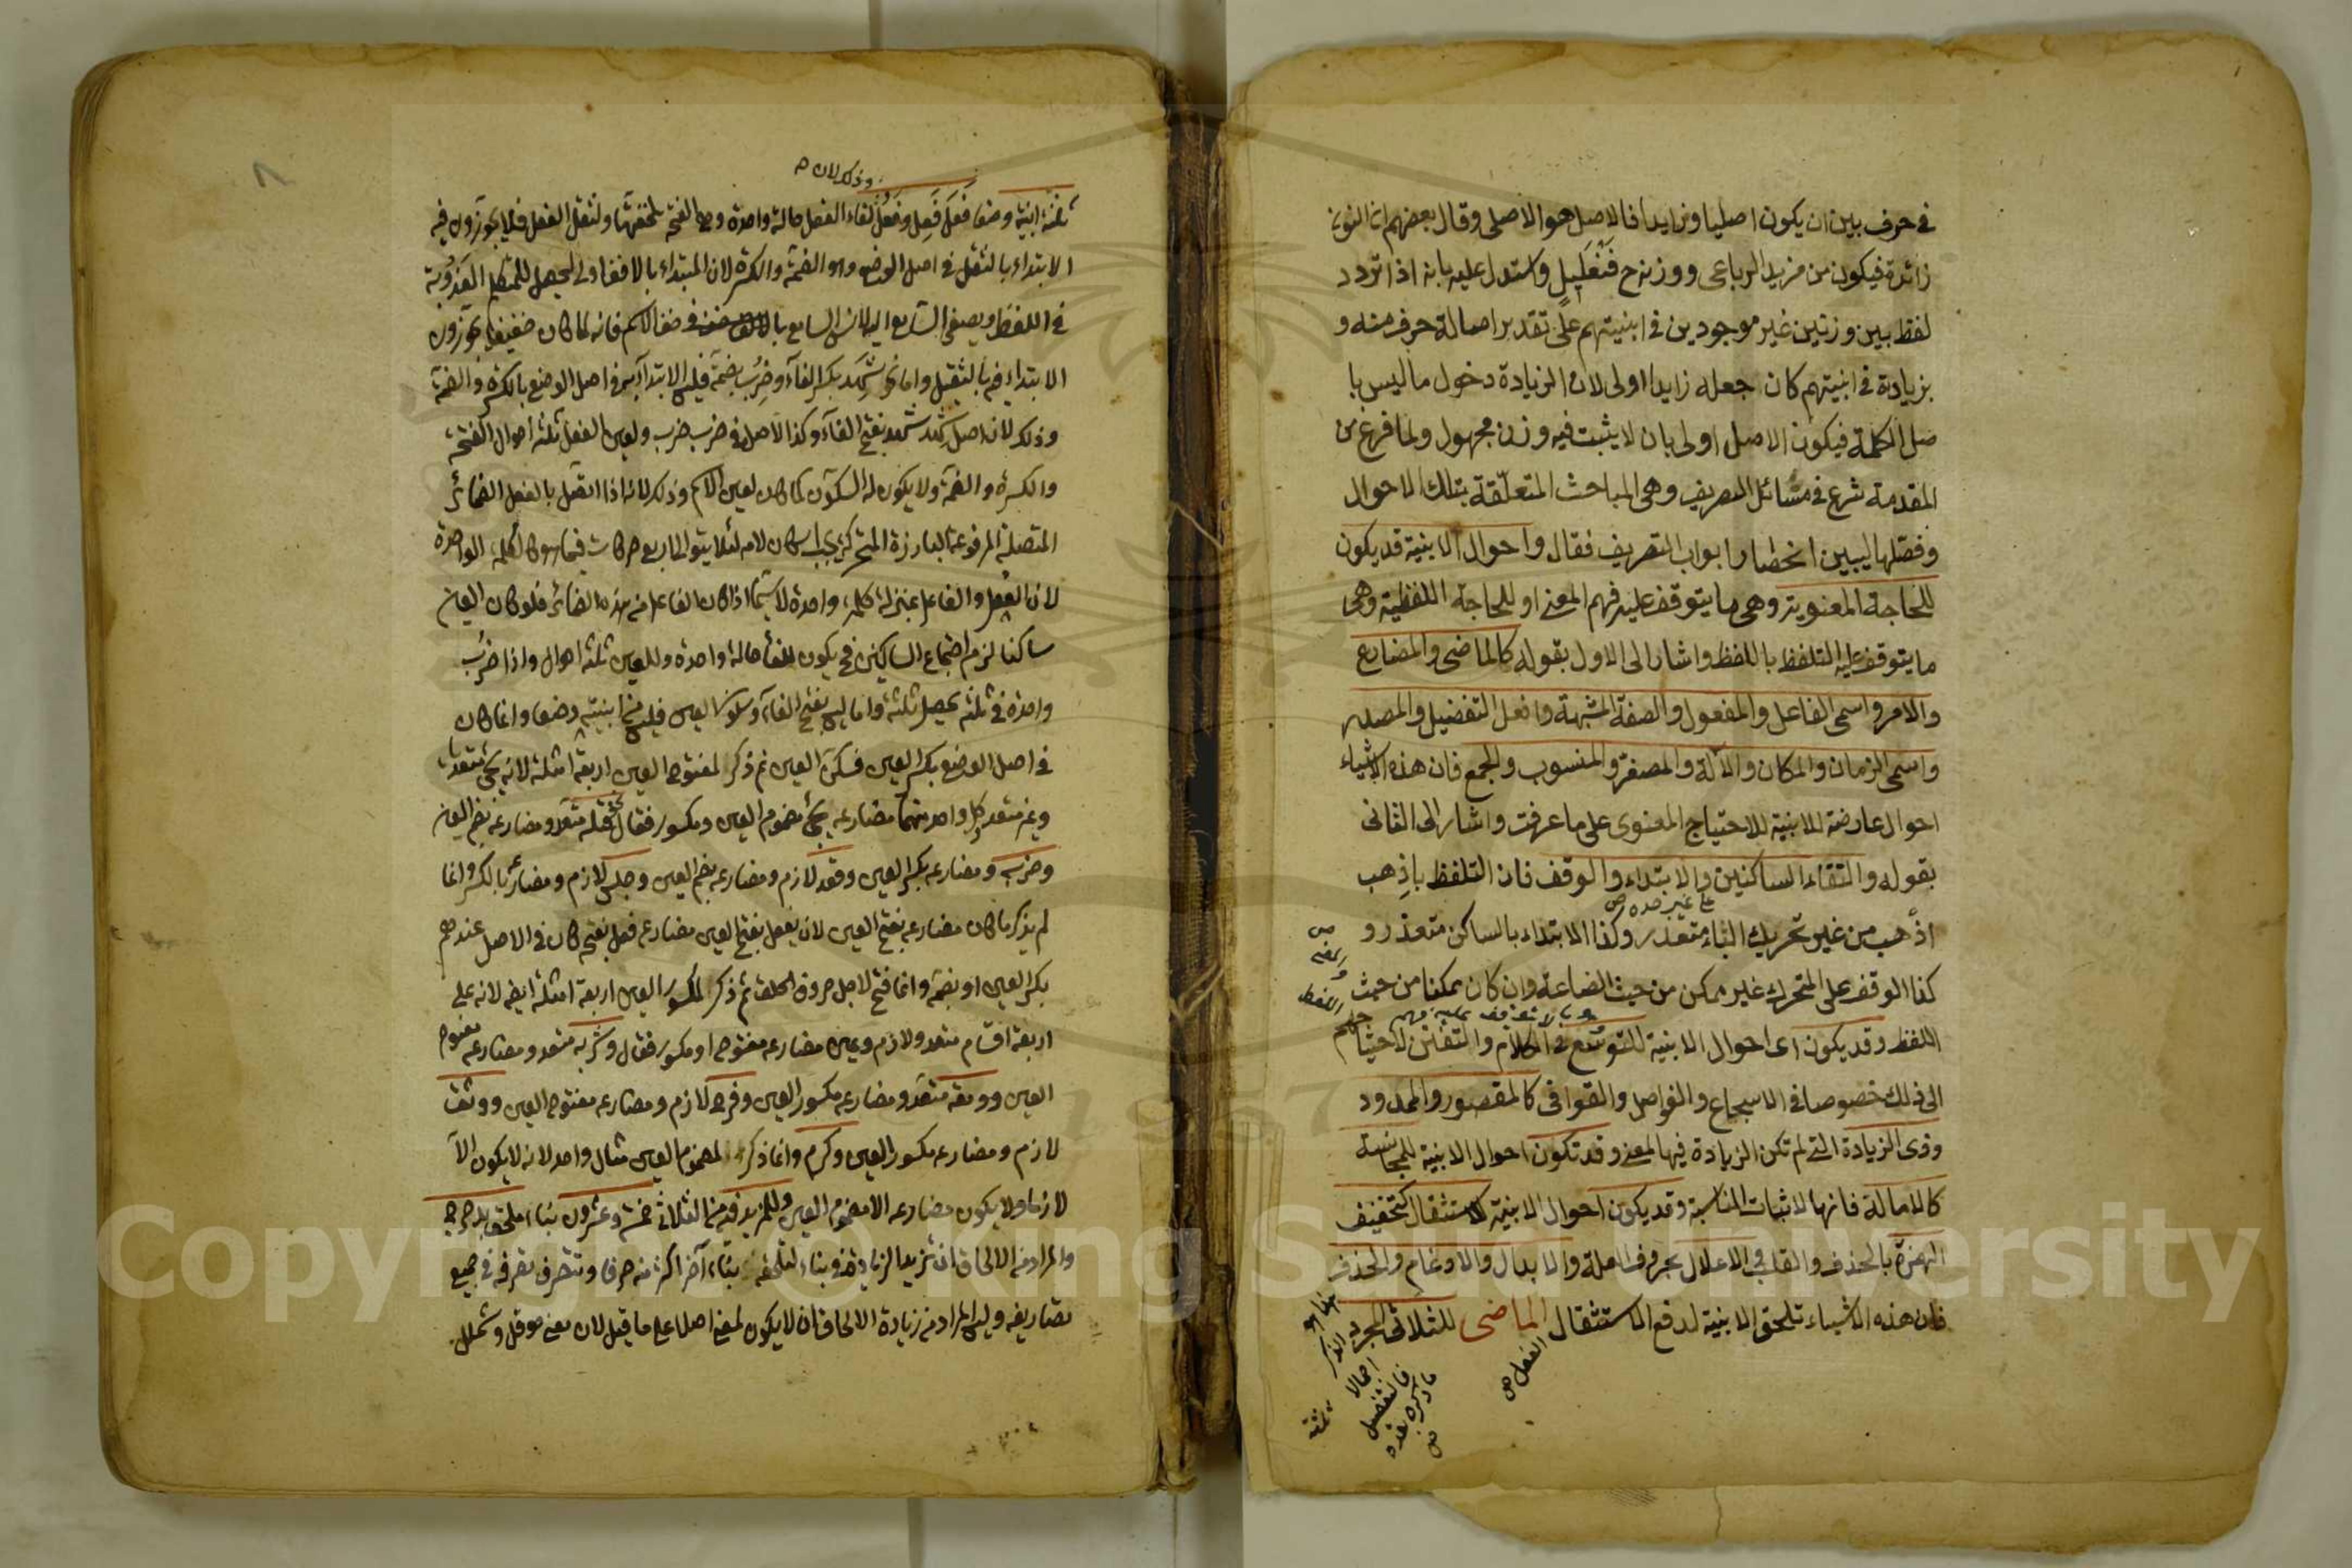 في حرف بين ان يكون اصليا وزايدا فالاصل هو الاصلي وقال بعضهم ان النون
زائدة فيكون من مزيد الرباعي ووزنه ح فنعليل واستدل عليه بانه اذا تردد
لفظ بين وزنين غير موجودين في ابنيتهم على تقدير اصالة حرف منه و
بزيادة في ابنيتهم كان جعله زايدا اولى لان الزيادة دخول ما ليس با
صل الكلمة فيكون الاصل اولى بان لا يثبت فيه وزن مجهول ولما فرغ من
المقدمة شرع في مسائل التصريف وهي المباحث المتعلقة بتلك الاحوال
وفصلها ليبين انحصار ابواب التصريف فقال واحوال الابنية قد يكون
للحاجة المعنوية وهي ما يتوقف عليه فهم المعنى او للحاجة اللفظية وهي
ما يتوقف عليه التلفظ باللفظ واشار الى الاول بقوله كالماضي والمضارع
والامر واسمي الفاعل والمفعول والصفة المشبهة وافعل التفضيل والمصدر
واسمي الزمان والمكان والآلة والمصغر والمنسوب والجمع فان هذه الاشياء
احوال عارضة للابنية للاحتياج المعنوي على ما عرفت واشار الى الثاني
بقوله والتقاء الساكنين والابتداء والوقف فان التلفظ باذهب
على غير حده ص
اذهب من غير تحريك الباء متعذر وكذا الابتداء بالساكن متعذر و
كذا الوقف على المتحرك غير ممكن من حيث الصناعة وان كان ممكنا من حيث
اللفظ وقد يكون اى احوال الابنية للتوسع في الكلام والتفنن لاحتيا
الى ذلك خصوصا في الاسجاع والفواصل والقوافي كالمقصور والممدود
وذي الزيادة التي لم تكن الزيادة فيها لمعنى وقد تكون احوال الابنية للمجانسة
كالامالة فانها لاثبات المناسبة وقد يكون احوال الابنية للاستثقال كتخفيف
الهمزة بالحذف والقلب والاعلال بحروف العلة والابدال والادغام والحذف
فان هذه الاشياء تلحق الابنية لدفع الاستثقال الماضي للثلاثي المجرد
الفعل ص
ثلثة
وذلك لان
ثلثة ابنية وضعا فعل فعل وفعل لفاء الفعل حالة واحدة وهي الفتحة لخفتها ولثقل الفعل فلا يجوزون فيه
الابتداء بالثقل في اصل الوضع وهو الضمة والكسرة لان المبتداء بالاخف اولى ليحصل للمتكلم العذوبة
في اللفظ ويصغى السامع اليه
الابتداء فيه بالثقيل واما نحو شهد بكسر الفاء وضرب بضمة فليس الابتداء بهما في اصل الوضع بالكسرة والضمة
وذلك لان اصل شهد شهد بفتح الفاء وكذا الاصل في ضرب ضرب ولعين الفعل ثلثة احوال الفتحة
والكسرة والضمة ولا يكون له السكون كما كان لعين الاسم وذلك لانه اذا اتصل بالفعل الضمائر
المتصلة المرفوعة البارزة المتحركة يجب اسكان لامه لئلا يتوالى اربع حركات فيما هو كالكلمة الواحدة
لان الفعل والفاعل بمنزلة كلمة واحدة لا سيما اذا كان الفاعل من هذه الضمائر فلو كان العين
ساكنا لزم اجتماع الساكنين فح يكون للفاء حالة واحدة وللعين ثلثة احوال واذا ضرب
واحدة في ثلثة يحصل ثلثة واما ليس بفتح الفاء وسكون العين فليس من ابنيته وضعا وانما كان
في اصل الوضع بكسر العين فسكن العين ثم ذكر لمفتوح العين اربعة امثلة لانه يجئ متعديا
وغير متعد وكل واحد منهما مضارعه يجئ مضموم العين ومكسور فقال كقتله متعد ومضارعه بضم العين
وضربه ومضارعه بكسر العين وقعد لازم ومضارعه بضم العين وجلس لازم ومضارعه بالكسر وانما
لم يذكر ما كان مضارعه بفتح العين لان يفعل بفتح العين مضارعه فعل بفتحه كان في الاصل عندهم
بكسر العين او بضمة وانما فتح لاجل حروف الحلق ثم ذكر لمكسور العين اربعة امثلة ايضا لانه على
اربعة اقسام متعد ولازم وعين مضارعه مفتوح او مكسور فقال وشربه متعد ومضارعه مفتوح
العين وومقه متعد ومضارعه مكسور العين وفرح لازم ومضارعه مفتوح العين ووثق
لازم ومضارعه مكسور العين وكرم وانما ذكر لمضموم العين مثال واحد لانه لا يكون الا
لازما ولا يكون مضارعه الا مضموم العين وللمزيد فيه من الثلاثي خمسة وعشرون بناء ملحق بدحرج
والمراد من الالحاق ان تزيد الزيادة في بناء لتلحقه بناء آخر اكثر منه حرفا وتتصرف تصرفه في جميع
تصاريفه وليس المراد من زيادة الالحاق ان لا يكون لمعنى اصلا على ما قيل لان معنى حوقل وشملل
Copyright © King Saud University
1957